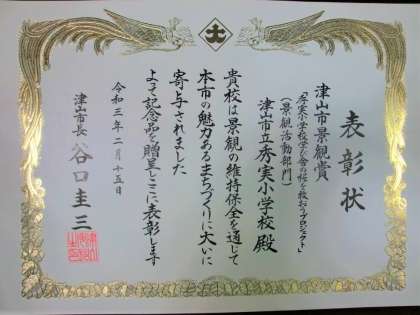 表彰状
津山市景観賞
(景観活動部門)
津山市立秀実小学校 殿
貴校は景観の維持保全を通じて
本市の魅力あるまちづくりに大いに
寄与されました
よって記念品を贈呈しここに表彰します
令和三年二月十五日
津山市長 谷口圭三